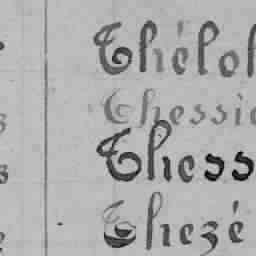 Thélol
Thessie
Thess
Thezé